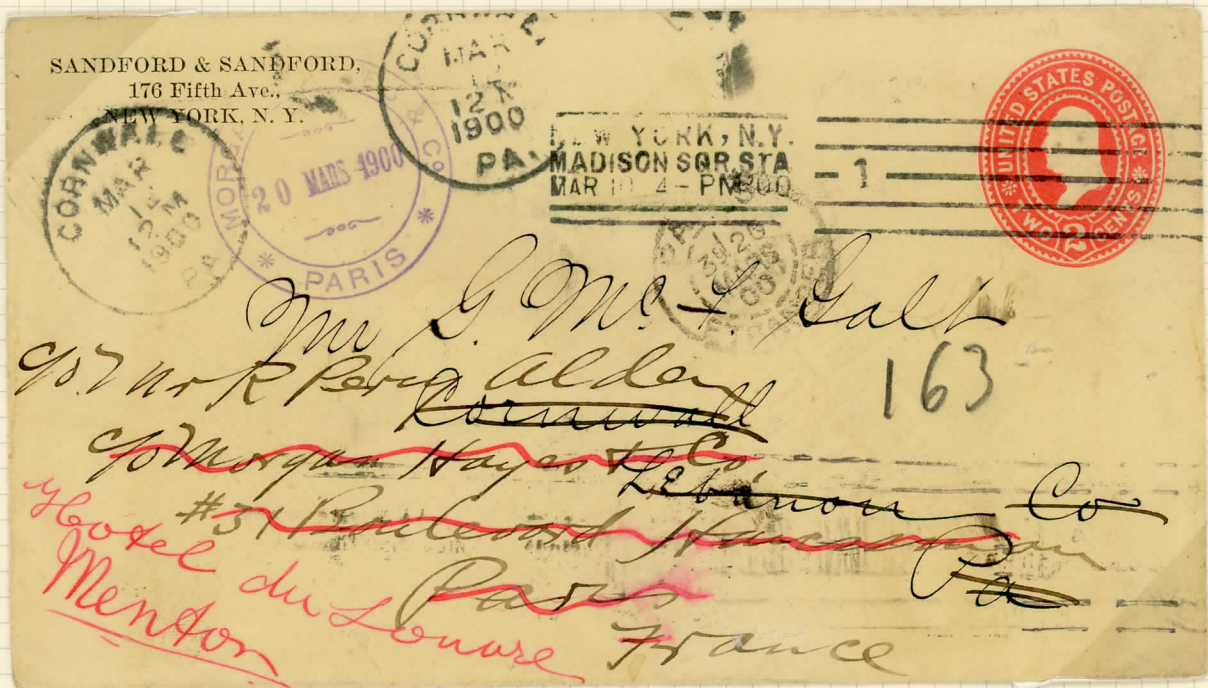 SANDFORD & SANDFORD,
176 Fifth Ave.,
NEW YORK, N. Y.
CORNWALL
MAR
12 M
1900
PA.
CORNWALL
MAR
12 M
1900
PA
MORGAN & Co
20 MARS 1900
* PARIS *
NEW YORK, N.Y.
MADISON SQR. STA
MAR 10 4-PM 1900
1
UNITED STATES POSTAGE
TWO 2 CENTS
MARS
00
ETRANGER
Mr G. Mc. F. Galt
c/o Mr R Percy Alden
Cornwall
c/o Morgan Hayes & Co
Lebanon Co
#31 Boulevard Haussmann
Pa
Paris
France
163
Hotel du Louvre
Menton